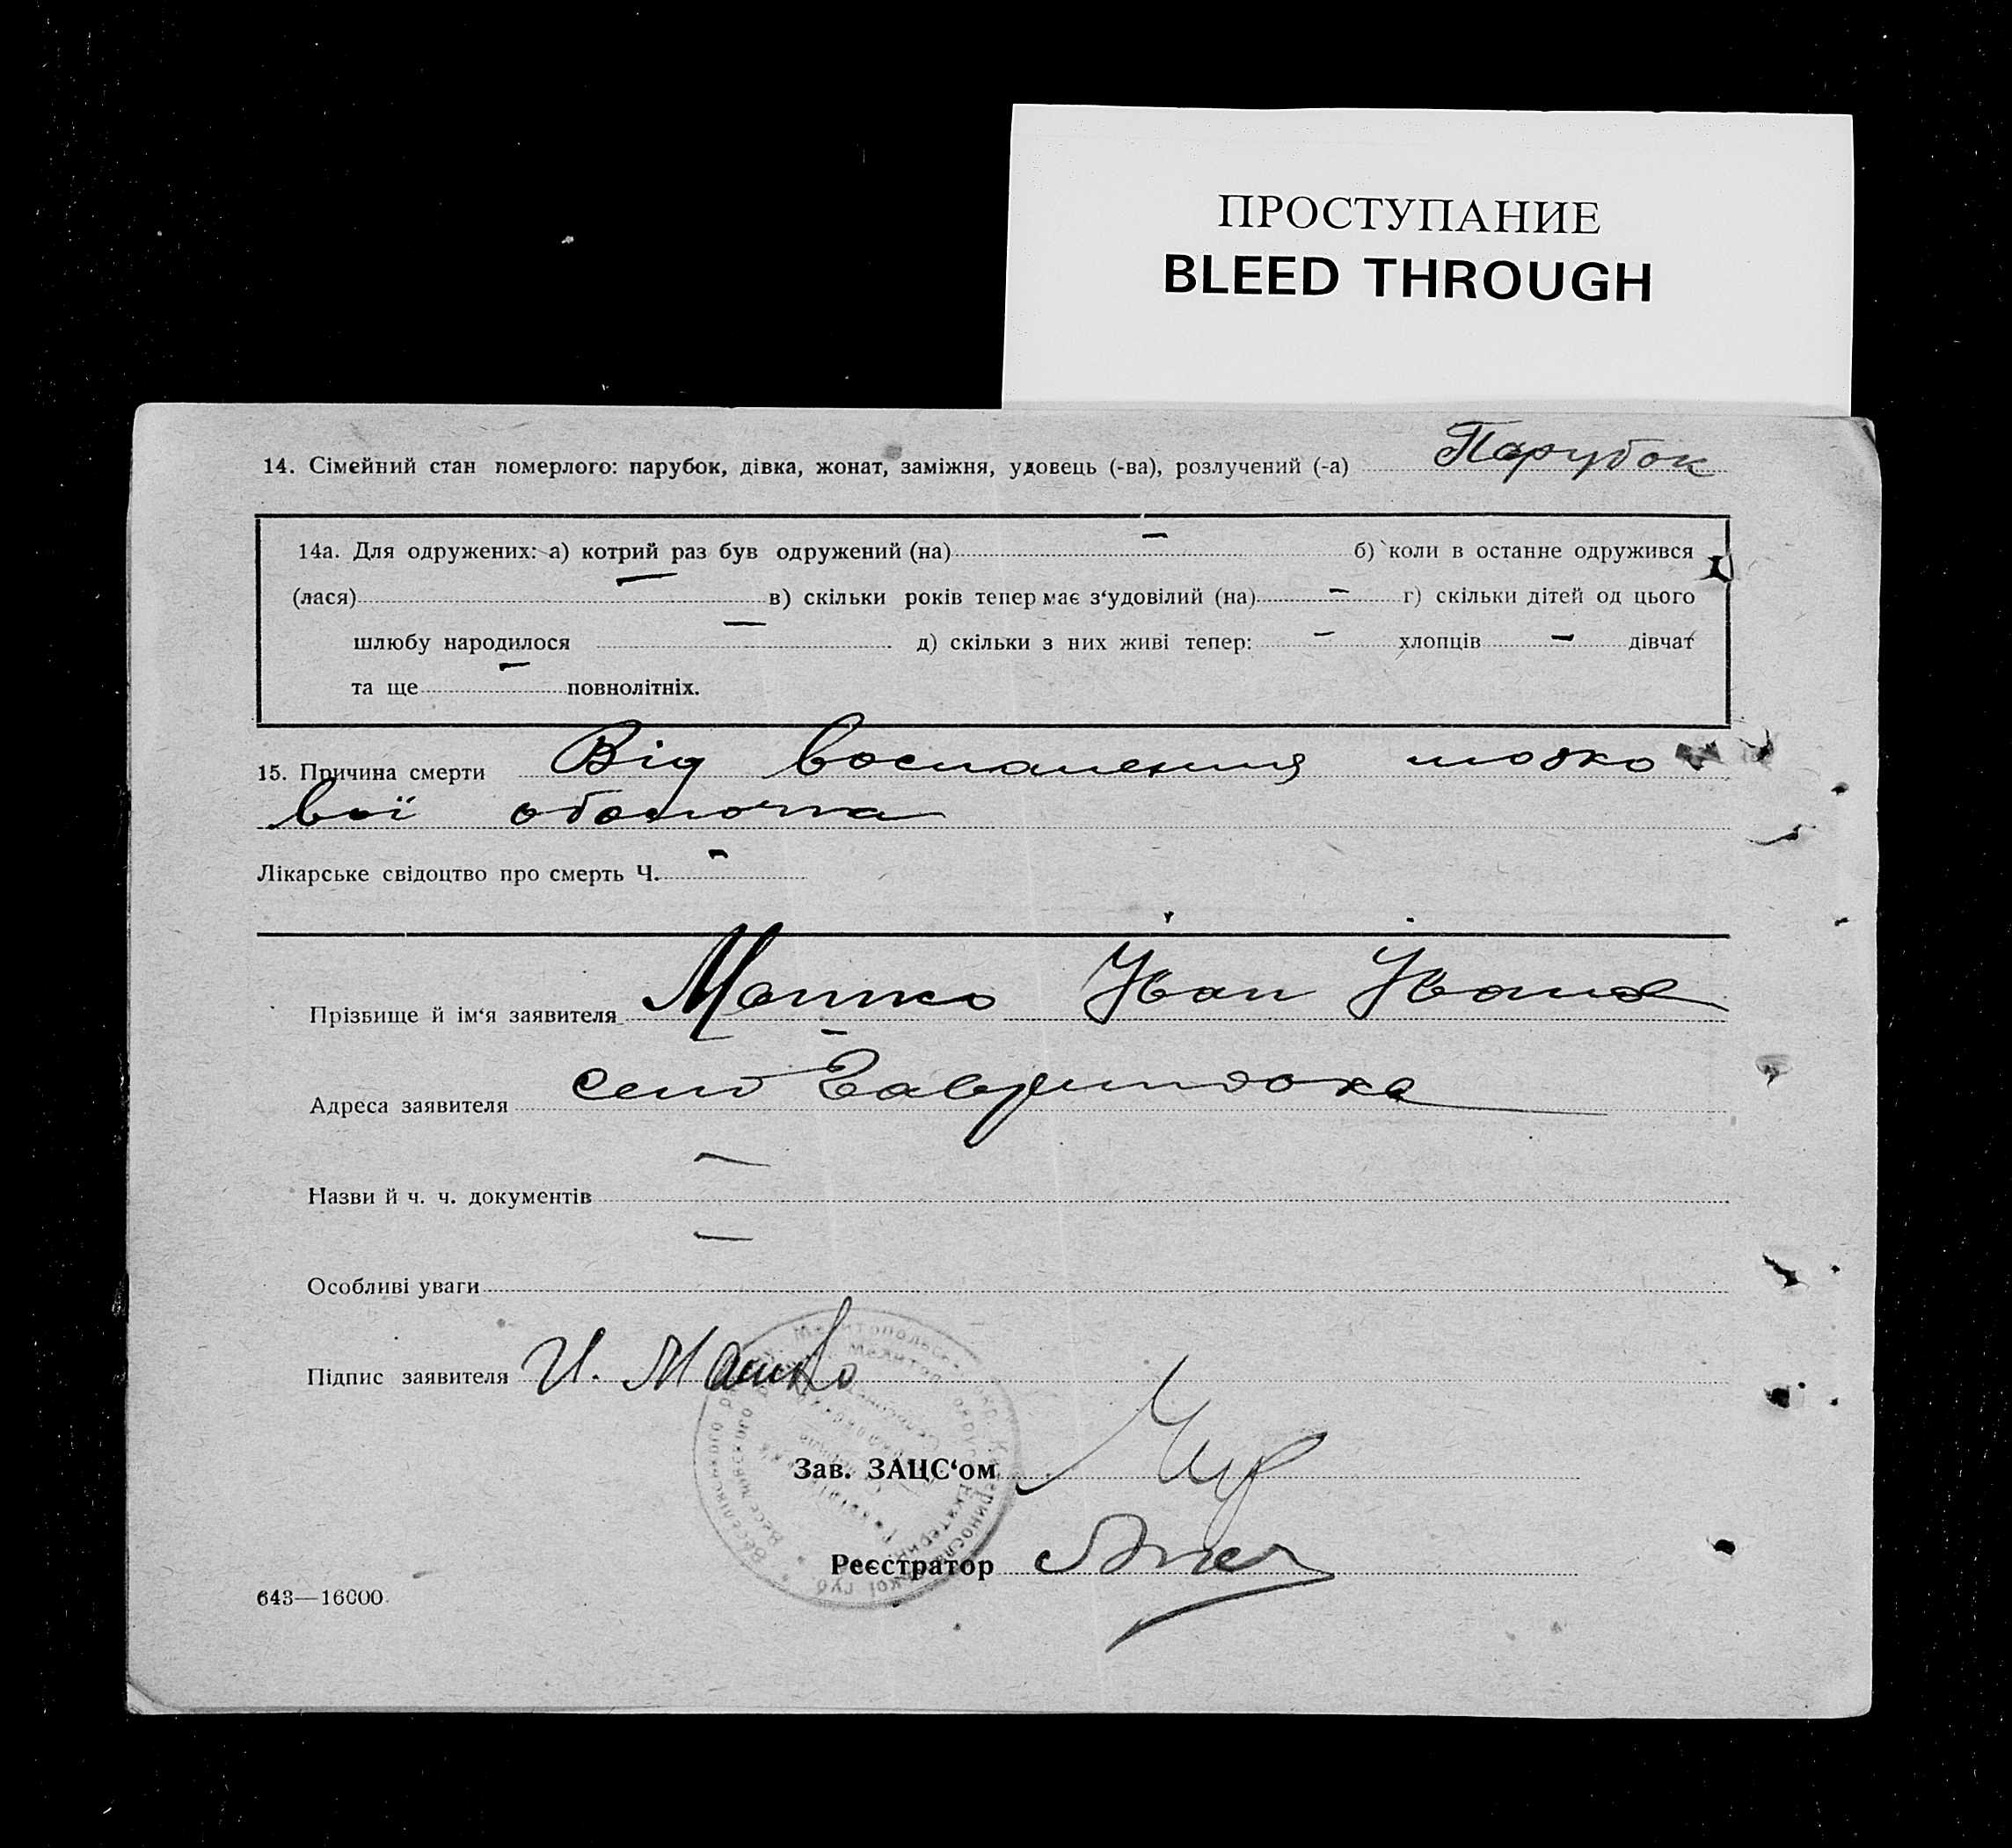 ПРОСТУПАНИЕ
BLEED THROUGH
14. Сімейний стан померлого: парубок, дівка, жонат, заміжня, удовець (-ва), розлучений (-а) Парубок
14а. Для одружених: а) котрий раз був одружений (на) — б) коли в останне одружився
(лася) — в) скільки років тепер має з‘удовілий (на) — г) скільки дітей од цього
шлюбу народилося — д) скільки з них живі тепер: — хлопців — дівчат
та ще — повнолітніх.
15. Причина смерти Від воспаления мозко
вої оболочка
Лікарське свідоцтво про смерть Ч. —
Прізвище й ім‘я заявителя Іван
Адреса заявителя село
Назви й ч. ч. документів —
Особливі уваги —
Підпис заявителя И.
Зав. ЗАЦС‘ом
Реєстратор
643—16000